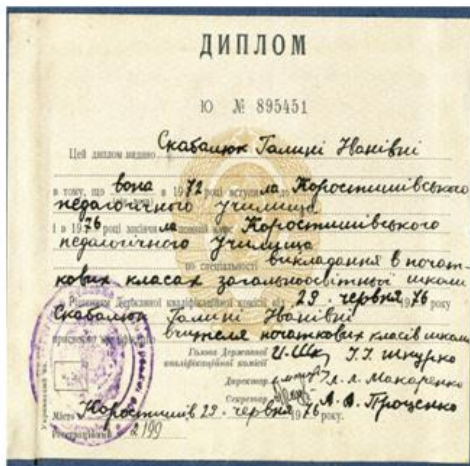 ДИПЛОМ
Ю № 895451
Цей диплом видано Скабалюк Галині Іванівні
в тому, що вона в 1972 році вступила до Коростишівського
педагогічного училища
і в 1976 році закінчила повний курс Коростишівського
педагогічного училища
по спеціальності викладання в почат-
кових класах загальноосвітньої школи
Рішенням Державної кваліфікаційної комісії від 29 червня 1976
Скабалюк Галині Іванівні
присвоєно кваліфікацію вчителя початкових класів школи
Голова Державної
кваліфікаційної комісії І. І. Шкурко
Директор Л. Л. Макаренко
Секретар А. В. Проценко
Місто Коростишів 29 червня 1976 року.
Реєстраційний 2199